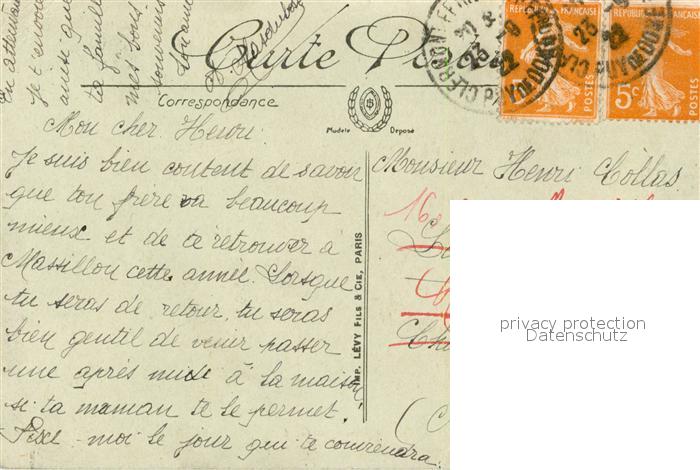 En attendant
Je t'envoie
ainsi que
ta famille
mes bons
souvenirs
Ton ami
Carte Postale
Correspondance
Modèle Déposé
RÉPUBLIQUE FRANÇAISE
POSTES
5c
RÉPUBLIQUE FRANÇAISE
POSTES
5c
CLERMONT-FERRAND
PUY DE DOME
Mon cher Henri
Je suis bien content de savoir
que ton frère va beaucoup
mieux et de te retrouver à
Massillon cette année. Lorsque
tu seras de retour, tu seras
bien gentil de venir passer
une après midi à la maison
si ta maman te le permet.
Fixe-moi le jour qui te conviendra.
IMP. LÉVY FILS & CIE, PARIS
Monsieur Henri Collas
16
privacy protection
Datenschutz